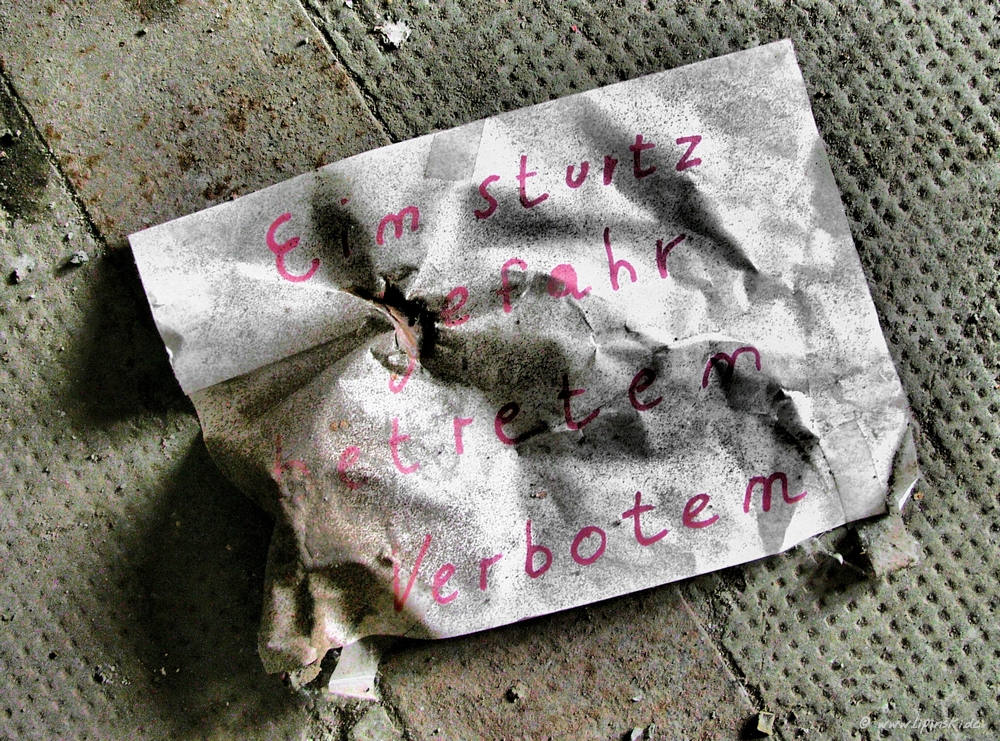 Einsturtz
gefahr
betreten
Verboten
© www.lipinski.de